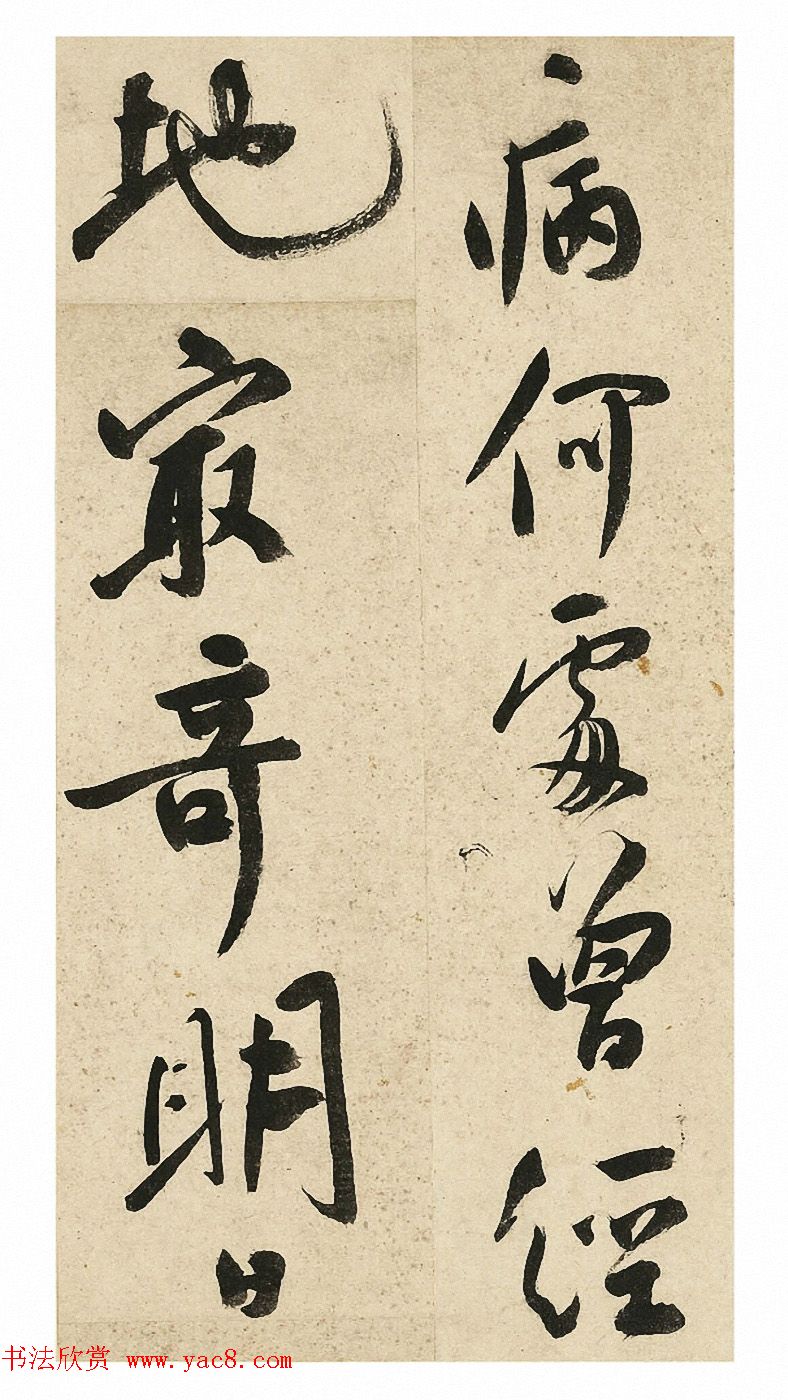 病何處曾經
地最奇明日
书法欣赏 www.yac8.com